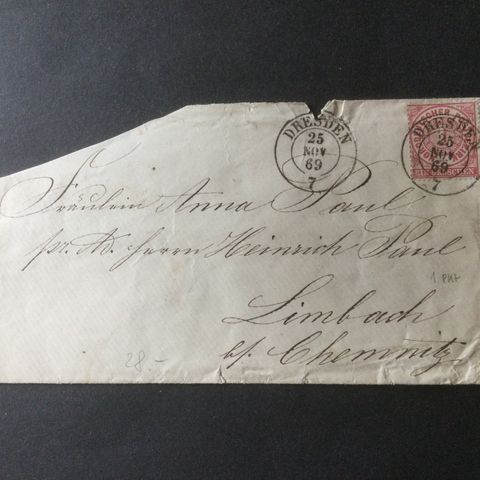 DRESDEN
25
NOV
69
7
DRESDEN
25
NOV
69
7
EIN GROSCHEN
Fräulein Anna Paul
pr. Ad. Herrn Heinrich Paul
Limbach
b/. Chemnitz
28.-